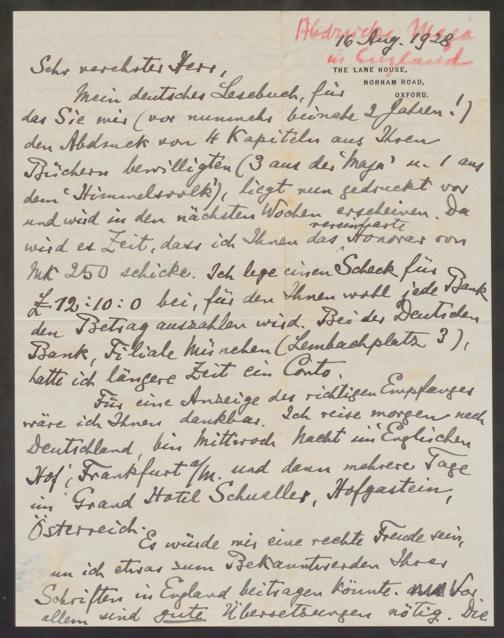 Abdrucke Maja
in England
16 Aug. 1928
THE LANE HOUSE,
NORHAM ROAD,
OXFORD.
Sehr verehrter Herr,
Mein deutsches Lesebuch, für
das Sie mir (vor nunmehr beinahe 2 Jahren!)
den Abdruck von 4 Kapiteln aus Ihren
Büchern bewilligten (3 aus der 'Maja' u. 1 aus
dem 'Himmelsvolk'), liegt nun gedruckt vor
und wird in den nächsten Wochen erscheinen. Da
wird es Zeit, dass ich Ihnen das vereinbarte Honorar von
Mk 250 schicke. Ich lege einen Scheck für
£ 12:10:0 bei, für den Ihnen wohl jede Bank
den Betrag auszahlen wird. Bei der Deutschen
Bank, Filiale München (Lembachplatz 3),
hatte ich längere Zeit ein Conto.
Für eine Anzeige des richtigen Empfanges
wäre ich Ihnen dankbar. Ich reise morgen nach
Deutschland, bin Mittwoch Nacht im 'Englischen
Hof', Frankfurt a/M. und dann mehrere Tage
im Grand Hotel Schueller, Hofgastein,
Österreich.
Es würde mir eine rechte Freude sein,
wenn ich etwas zum Bekanntwerden Ihrer
Schriften in England beitragen könnte. Vor
allem sind gute Übersetzungen nötig. Die